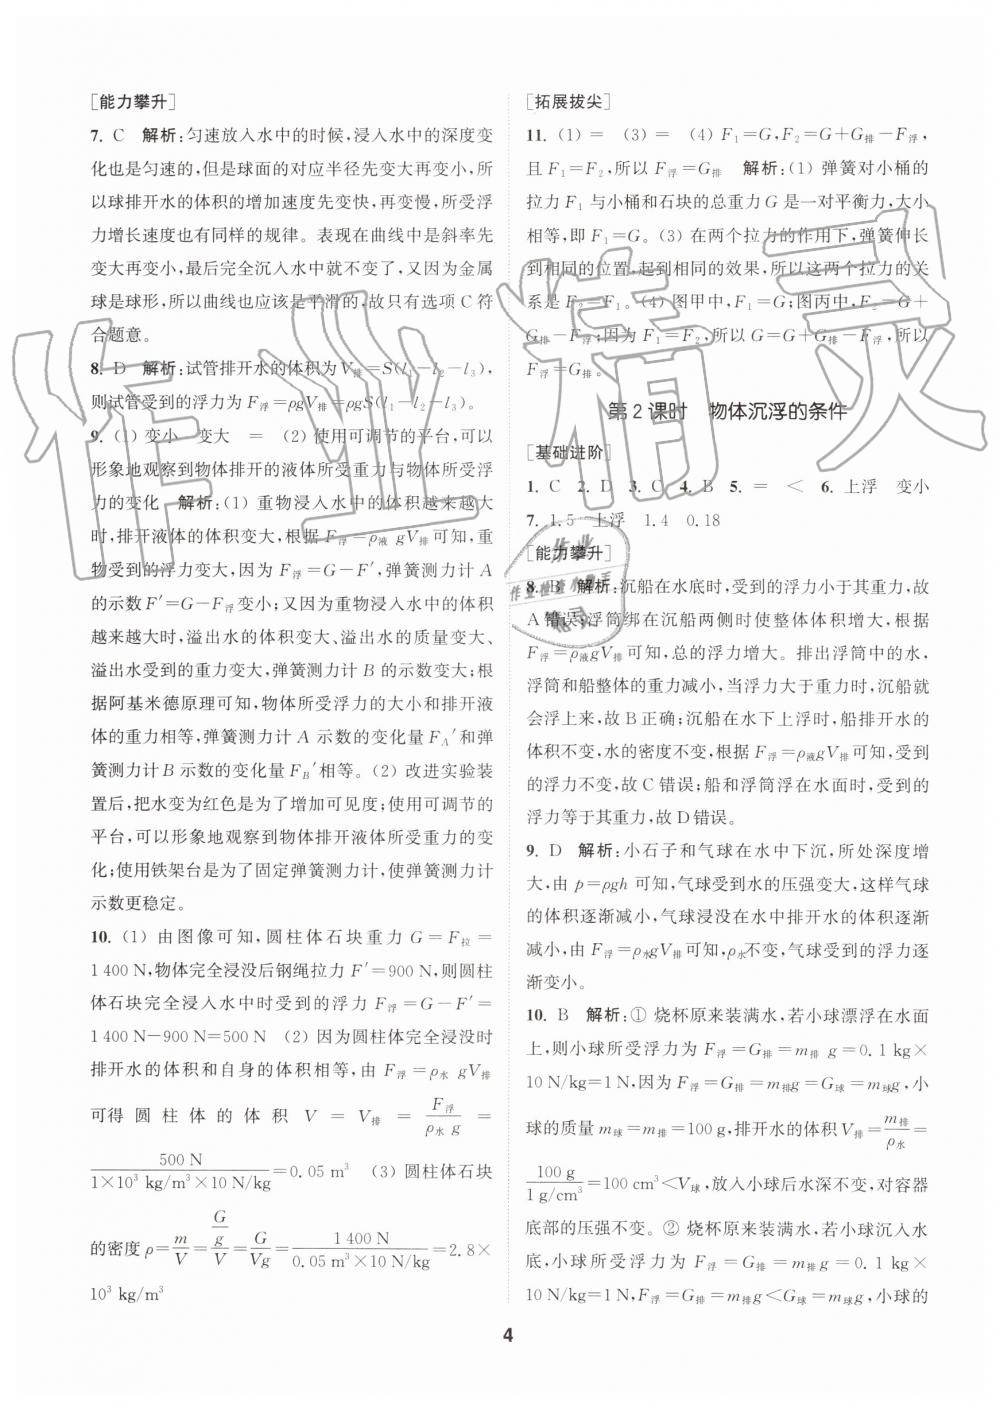 [能力攀升]
7. C 解析:匀速放入水中的时候,浸入水中的深度变
化也是匀速的,但是球面的对应半径先变大再变小,所
以球排开水的体积的增加速度先变快,再变慢,所受浮
力增长速度也有同样的规律。表现在曲线中是斜率先
变大再变小,最后完全沉入水中就不变了,又因为金属
球是球形,所以曲线也应该是平滑的,故只有选项C符
合题意。
8. D 解析:试管排开水的体积为V排=S(l₁-l₂-l₃),
则试管受到的浮力为F浮=ρgV排=ρgS(l₁-l₂-l₃)。
9. (1) 变小 变大 = (2) 使用可调节的平台,可以
形象地观察到物体排开的液体所受重力与物体所受浮
力的变化 解析:(1) 重物浸入水中的体积越来越大
时,排开液体的体积变大,根据F浮=ρ液 gV排可知,重
物受到的浮力变大,因为F浮=G-F′,弹簧测力计A
的示数F′=G-F浮变小;又因为重物浸入水中的体积
越来越大时,溢出水的体积变大、溢出水的质量变大、
溢出水受到的重力变大,弹簧测力计B的示数变大;根
据阿基米德原理可知,物体所受浮力的大小和排开液
体的重力相等,弹簧测力计A示数的变化量F_A′和弹
簧测力计B示数的变化量F_B′相等。(2) 改进实验装
置后,把水变为红色是为了增加可见度;使用可调节的
平台,可以形象地观察到物体排开液体所受重力的变
化;使用铁架台是为了固定弹簧测力计,使弹簧测力计
示数更稳定。
10. (1) 由图像可知,圆柱体石块重力G=F拉=
1 400 N,物体完全浸没后钢绳拉力F′=900 N,则圆柱
体石块完全浸入水中时受到的浮力F浮=G-F′=
1 400 N-900 N=500 N (2) 因为圆柱体完全浸没时
排开水的体积和自身的体积相等,由F浮=ρ水 gV排
可得圆柱体的体积V=V排=F浮/ρ水 g=
500 N/1×10³ kg/m³×10 N/kg=0.05 m³ (3) 圆柱体石块
的密度ρ=m/V=(G/g)/V=G/Vg=1 400 N/0.05 m³×10 N/kg=2.8×
10³ kg/m³
[拓展拔尖]
11. (1) = (3) = (4) F₁=G,F₂=G+G排-F浮,
且F₁=F₂,所以F浮=G排 解析:(1) 弹簧对小桶的
拉力F₁与小桶和石块的总重力G是一对平衡力,大小
相等,即F₁=G。(3) 在两个拉力的作用下,弹簧伸长
到相同的位置,起到相同的效果,所以这两个拉力的关
系是F₂=F₁。(4) 图甲中,F₁=G;图丙中,F₂=G+
G排-F浮;因为F₁=F₂,所以G=G+G排-F浮,所以
F浮=G排。
第2课时 物体沉浮的条件
[基础进阶]
1. C 2. D 3. C 4. B 5. = < 6. 上浮 变小
7. 1.5 上浮 1.4 0.18
[能力攀升]
8. B 解析:沉船在水底时,受到的浮力小于其重力,故
A错误;浮筒绑在沉船两侧时使整体体积增大,根据
F浮=ρ液gV排可知,总的浮力增大。排出浮筒中的水,
浮筒和船整体的重力减小,当浮力大于重力时,沉船就
会浮上来,故B正确;沉船在水下上浮时,船排开水的
体积不变,水的密度不变,根据F浮=ρ液gV排可知,受到
的浮力不变,故C错误;船和浮筒浮在水面时,受到的
浮力等于其重力,故D错误。
9. D 解析:小石子和气球在水中下沉,所处深度增
大,由p=ρgh可知,气球受到水的压强变大,这样气球
的体积逐渐减小,气球浸没在水中排开水的体积逐渐
减小,由F浮=ρ水gV排可知,ρ水不变,气球受到的浮力逐
渐变小。
10. B 解析:① 烧杯原来装满水,若小球漂浮在水面
上,则小球所受浮力为F浮=G排=m排 g=0.1 kg×
10 N/kg=1 N,因为F浮=G排=m排g=G球=m球g,小
球的质量m球=m排=100 g,排开水的体积V排=m排/ρ水=
100 g/1 g/cm³=100 cm³<V球,放入小球后水深不变,对容器
底部的压强不变。② 烧杯原来装满水,若小球沉入水
底,小球所受浮力为F浮=G排=m排g=0.1 kg×
10 N/kg=1 N,F浮=G排=m排g<G球=m球g,小球的
4
作业精灵
作业
作业检查小帮手
精灵